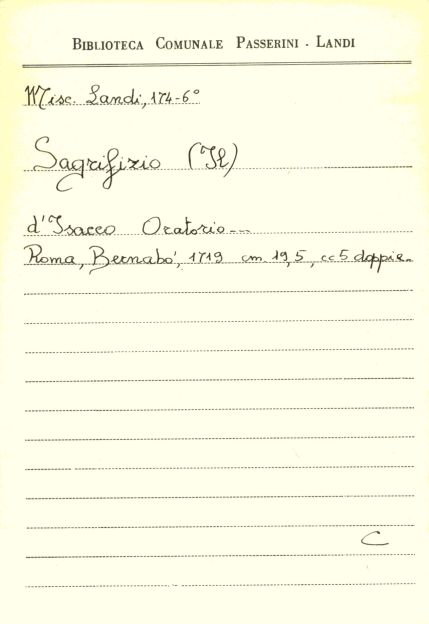 BIBLIOTECA COMUNALE PASSERINI - LANDI
Misc. Landi, 174-6°
Sagrifizio (Il)
d'Isacco Oratorio---
Roma, Bernabò, 1719 cm. 19,5, cc 5 doppie.
C